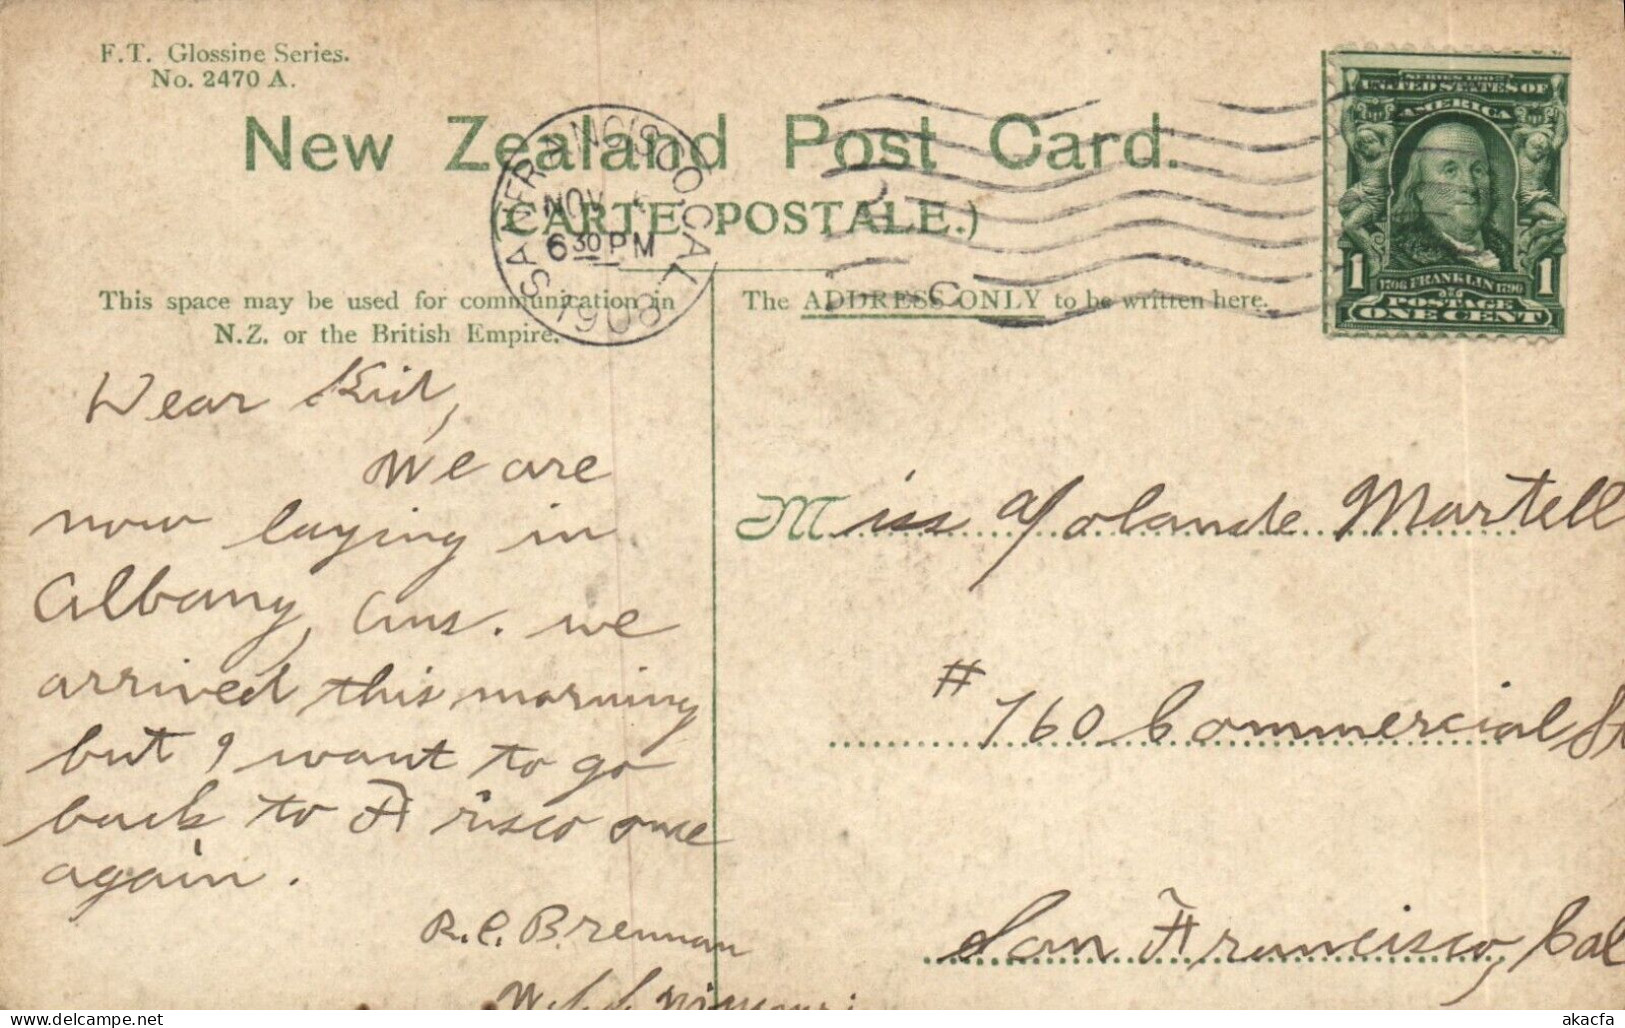 F.T. Glossine Series.
No. 2470 A.
New Zealand Post Card.
(CARTE POSTALE.)
SAN FRANCISCO, CAL.
NOV
6 30 PM
1908
SERIES 1902
UNITED STATES OF
AMERICA
1706 FRANKLIN 1790
1 1
POSTAGE
ONE CENT
This space may be used for communication in
N.Z. or the British Empire.
The ADDRESS ONLY to be written here.
Dear Kid,
We are
now laying in
Albany, Aus. we
arrived this morning
but I want to go
back to Frisco once
again.
R.C. Brennan
U.S.S. Missouri
Miss Yolande Martell
# 760 Commercial St
San Francisco, Cal
akacfa